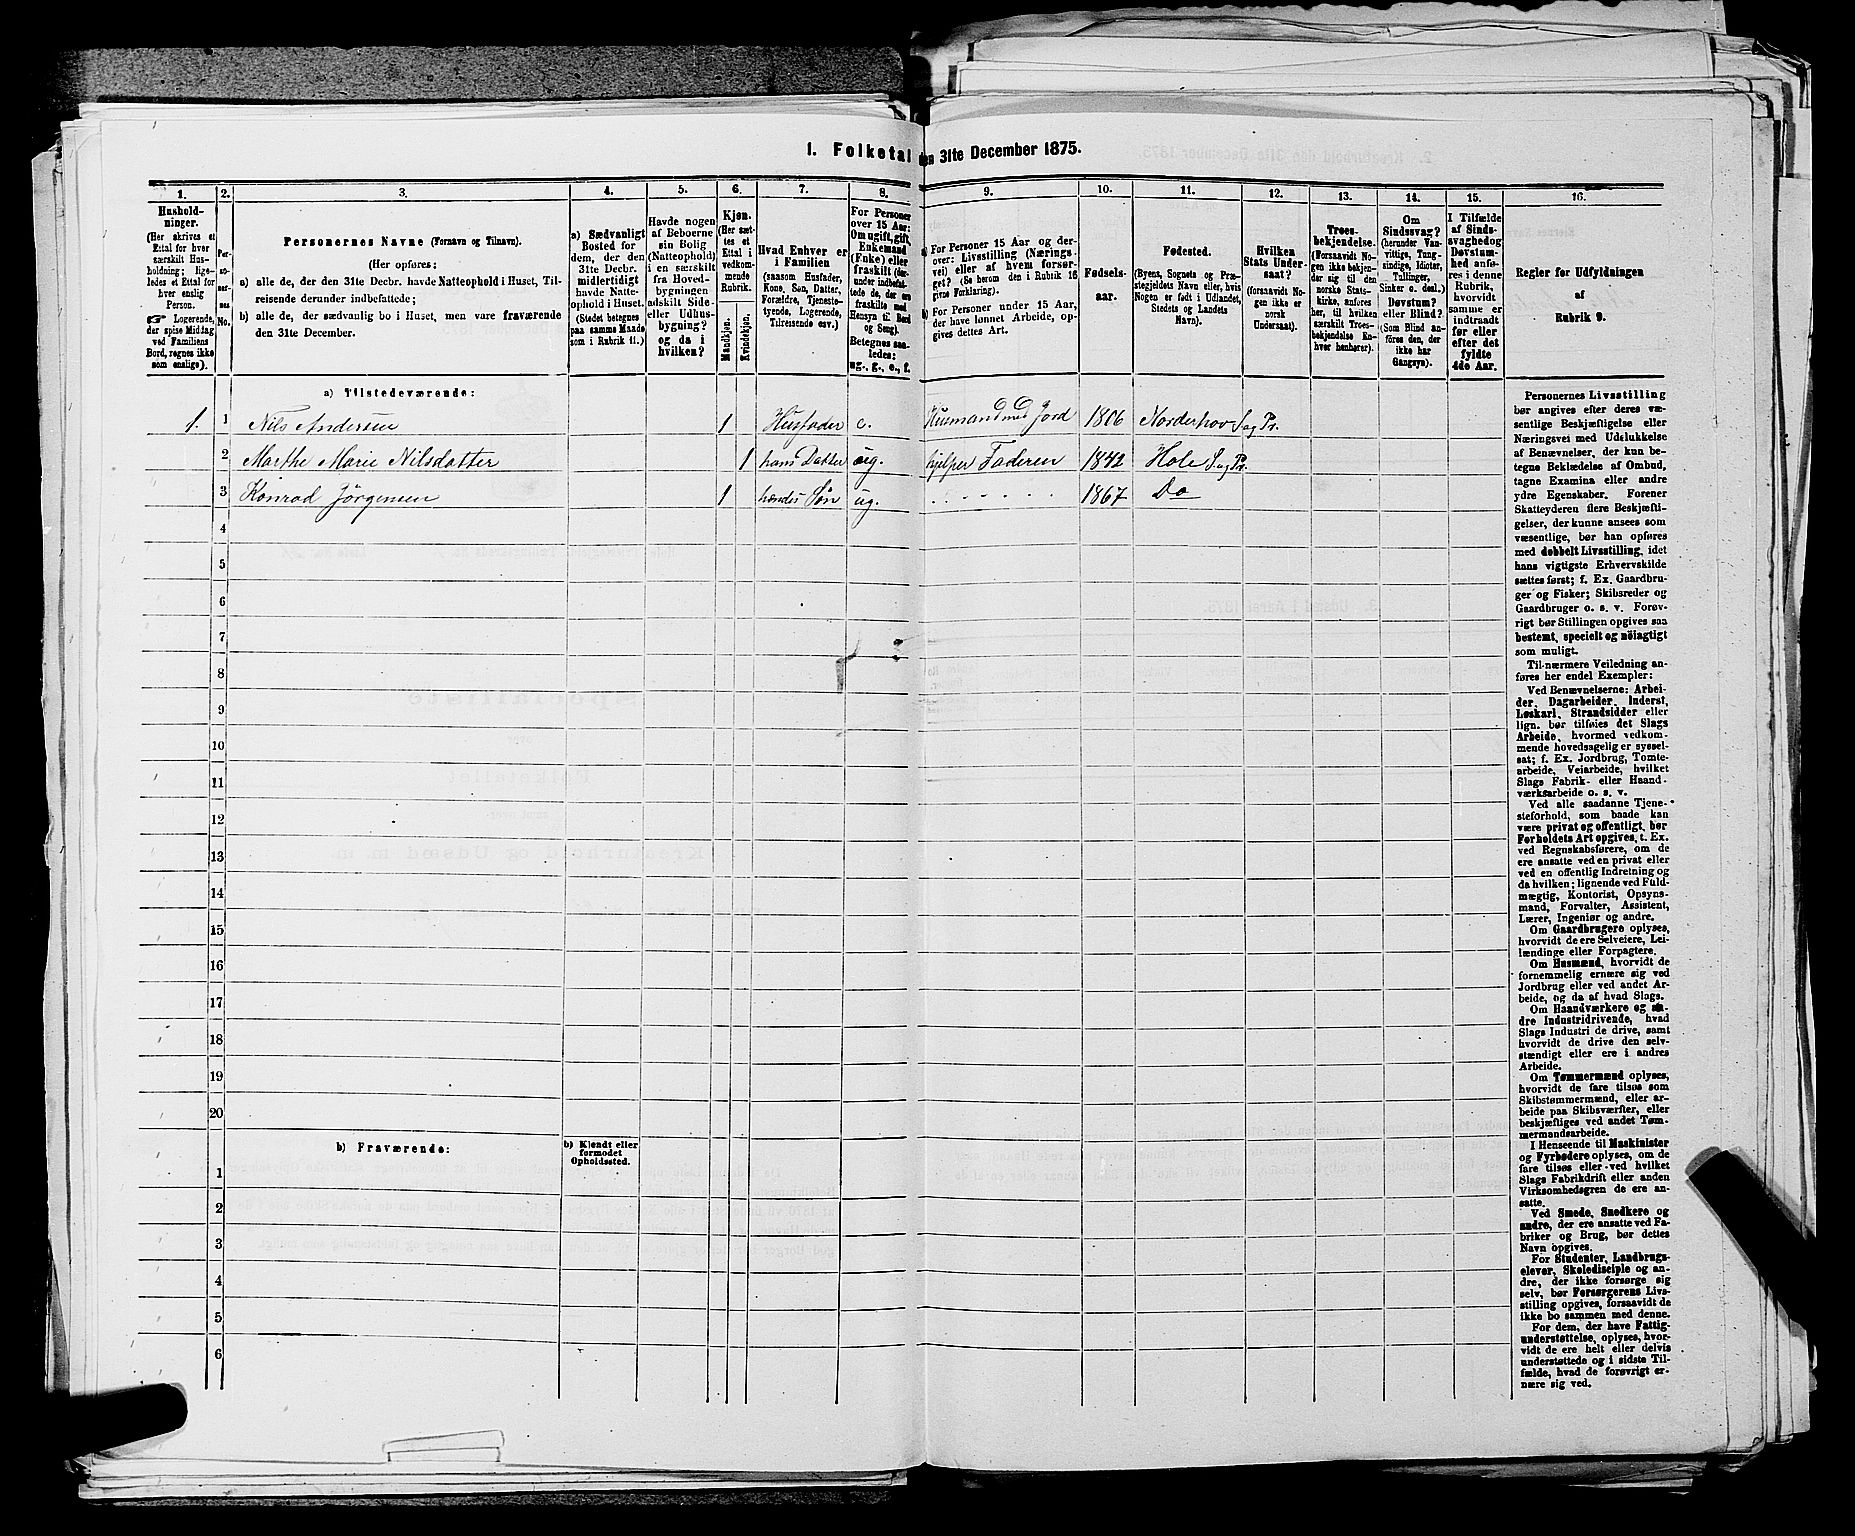 1. Folketal den 31te December 1875.
1. 2. 3. 4. 5. 6. 7. 8. 9. 10. 11. 12. 13. 14. 15. 16.
Hushold-
ninger.
(Her skrives et
Ettal for hver
særskilt Hus-
holdning; lige-
ledes et Ettal for
hver enslig
Person.
☞ Logerende,
der spise Middag
ved Familiens
Bord, regnes ikke
som enslige).
Per-
so-
ner-
nes
No.
Personernes Navne (Fornavn og Tilnavn).
(Her opføres:
a) alle de, der den 31te Decbr. havde Natteophold i Huset, Til-
reisende derunder indbefattede;
b) alle de, der sædvanlig bo i Huset, men vare fraværende
den 31te December.
a) Sædvanligt
Bosted for
dem, der den
31te Decbr.
midlertidigt
havde Natte-
ophold i Huset.
(Stedet betegnes
paa samme Maade
som i Rubrik 11.)
Havde nogen
af Beboerne
sin Bolig
(Natteophold)
i en særskilt
fra Hoved-
bygningen
adskilt Side-
eller Udhus-
bygning?
og da i
hvilken?
Kjøn.
(Her sæt-
tes et
Ettal i
vedkom-
mende
Rubrik.
Mandkjøn.
Kvindekjøn.
Hvad Enhver er
i Familien
(saasom Husfader,
Kone, Søn, Datter,
Forældre, Tjeneste-
tyende, Logerende,
Tilreisende osv.)
For Personer
over 15 Aar:
Om ugift, gift,
Enkemand
(Enke) eller
fraskilt (der-
under indbefat-
tede de, der ere
fraskilte med
Hensyn til Bord
og Seng).
Betegnes saa-
ledes:
ug., g., e., f.
a) For Personer 15 Aar og der-
over: Livsstilling (Nærings-
vei) eller af hvem forsør-
get? (Se herom den i Rubrik 16
givne Forklaring).
b) For Personer under 15 Aar,
der have lønnet Arbeide, op-
gives dettes Art.
Fødsels-
aar.
Fødested.
(Byens, Sognets og Præ-
stegjeldets Navn eller, hvis
Nogen er født i Udlandet,
Stedets og Landets
Navn).
Hvilken
Stats Under-
saat?
(forsaavidt No-
gen ikke er
norsk
Undersaat).
Troes-
bekjendelse.
(Forsaavidt No-
gen ikke bekjen-
der sig til den
norske Stats-
kirke, anføres
her, til hvilken
særskilt Troes-
bekjendelse En-
hver henhører).
Om
Sindssvag?
(herunder Van-
vittige, Tung-
sindige, Idioter,
Tullinger,
Sinker o. desl.)
Døvstum?
eller Blind?
(Som Blind an-
föres den, der
ikke har
Gangsyn).
I Tilfælde
af Sinds-
svaghed og
Døvstum-
hed anfø-
res i denne
Rubrik,
hvorvidt
samme er
indtraadt
før eller
efter det
fyldte
4de Aar.
Regler for Udfyldningen
af
Rubrik 9.
a) Tilstedeværende:
1. 1 Nils Andersen 1 Husfader e. Husmand med Jord 1806 Norderhov S og Pr.
2 Marthe Marie Nilsdatter 1 hans Datter ug. hjelper Faderen 1842 Hole S og Pr.
3 Konrad Jörgensen 1 hendes Søn ug. . . . . . . 1867 Do
4
5
6
7
8
9
10
11
12
13
14
15
16
17
18
19
20
b) Fraværende:
b) Kjendt eller
formodet
Opholdssted.
1
2
3
4
5
6
Personernes Livsstilling
bør angives efter deres væ-
sentlige Beskjæftigelse eller
Næringsvei med Udelukkelse
af Benævnelser, der kun be-
tegne Beklædelse af Ombud,
tagne Examina eller andre
ydre Egenskaber. Forener
Skatteyderen flere Beskjæfti-
gelser, der kunne ansees som
væsentlige, bør han opføres
med dobbelt Livsstilling, idet
hans vigtigste Erhvervskilde
sættes først; f. Ex. Gaardbru-
ger og Fisker; Skibsreder og
Gaardbruger o. s. v. Forøv-
rigt bør Stillingen opgives saa
bestemt, specielt og nöiagtigt
som muligt.
Til nærmere Veiledning an-
føres her endel Exempler:
Ved Benævnelserne: Arbei-
der, Dagarbeider, Inderst,
Løskarl, Strandsidder eller
lign. bør tilføies det Slags
Arbeide, hvormed vedkom-
mende hovedsagelig er syssel-
sat; f. Ex. Jordbrug, Tomte-
arbeide, Veiarbeide, hvilket
Slags Fabrik- eller Haand-
værksarbeide o. s. v.
Ved alle saadanne Tjene-
steforhold, som baade kan
være privat og offentligt, bør
Forholdets Art opgives, t. Ex.
ved Regnskabsførere, om de
ere ansatte ved en privat eller
ved en offentlig Indretning og
da hvilken; lignende ved Fuld-
mægtig, Kontorist, Opsyns-
mand, Forvalter, Assistent,
Lærer, Ingeniør og andre.
Om Gaardbrugere oplyses,
hvorvidt de ere Selveiere, Lei-
lændinge eller Forpagtere.
Om Husmænd, hvorvidt de
fornemmelig ernære sig ved
Jordbrug eller ved andet Ar-
beide, og da af hvad Slags.
Om Haandværkere og an-
dre Industridrivende, hvad
Slags Industri de drive, samt
hvorvidt de drive den selv-
stændigt eller ere i andres
Arbeide.
Om Tømmermænd oplyses,
hvorvidt de fare tilsøs som
Skibstømmermænd, eller ar-
beide paa Skibsværfter, eller
beskjæftiges ved andet Tøm-
mermandsarbeide.
I Henseende til Maskinister
og Fyrbødere oplyses, om de
fare tilsøs eller ved hvilket
Slags Fabrikdrift eller anden
Virksomhedsgren de ere an-
satte.
Ved Smede, Snedkere og
andre, der ere ansatte ved Fa-
briker og Brug, bør dettes
Navn opgives.
For Studenter, Landbrugs-
elever, Skoledisciple og an-
dre, der ikke forsørge sig
selv, bør Forsørgerens Livs-
stilling opgives, forsaavidt de
ikke bo sammen med denne.
For dem, der have Fattig-
understøttelse, oplyses, hvor-
vidt de ere helt eller delvis
understøttede og i sidste Til-
fælde, hvad de forøvrigt er-
nære sig ved.